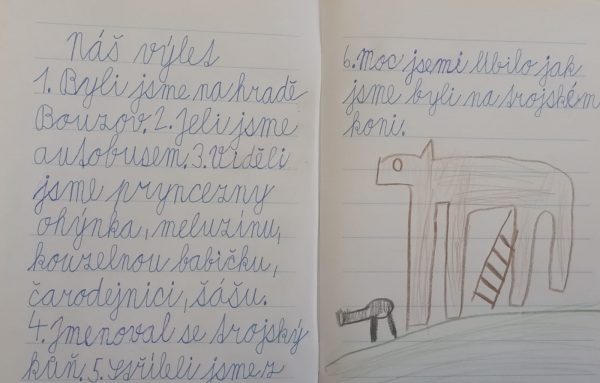 Náš výlet
1. Byli jsme na hradě
Bouzov. 2. Jeli jsme
autobusem. 3. Viděli
jsme pryncezny
ohýnka, meluzínu,
kouzelnou babičku,
čarodejnici, šášu.
4. Jmenoval se trojský
kůň. 5. Stříleli jsme z
6. Moc jsemi líbilo jak
jsme byli na trojském
koni.